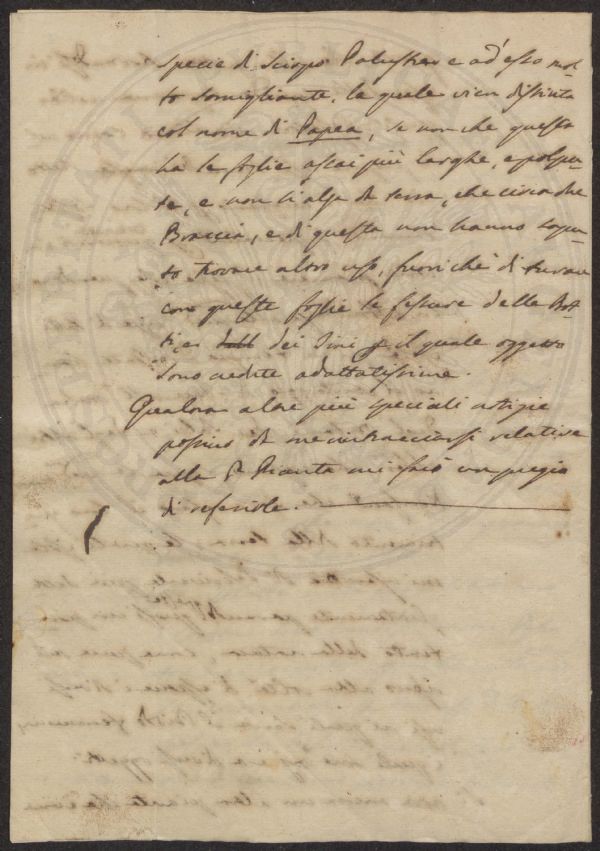 specie di Sciopo Palustre e ad'esso mol=
to somigliante, la quale vien distinta
col nome di Papea, se non che questa
ha le foglie assai più larghe, e polpu=
te, e non s'alza da terra, che circa due
Braccia, e di questa non hanno sapu=
to trovare altro uso, fuori che di turare
con queste foglie le fessure delle Bot=
ti, e dei Tini il quale oggetto
sono credute adattatissime.
Qualora altre più speciali notizie
possino da me rintracciarsi relative
alla Pianta mi farò un pregio
di referirle.